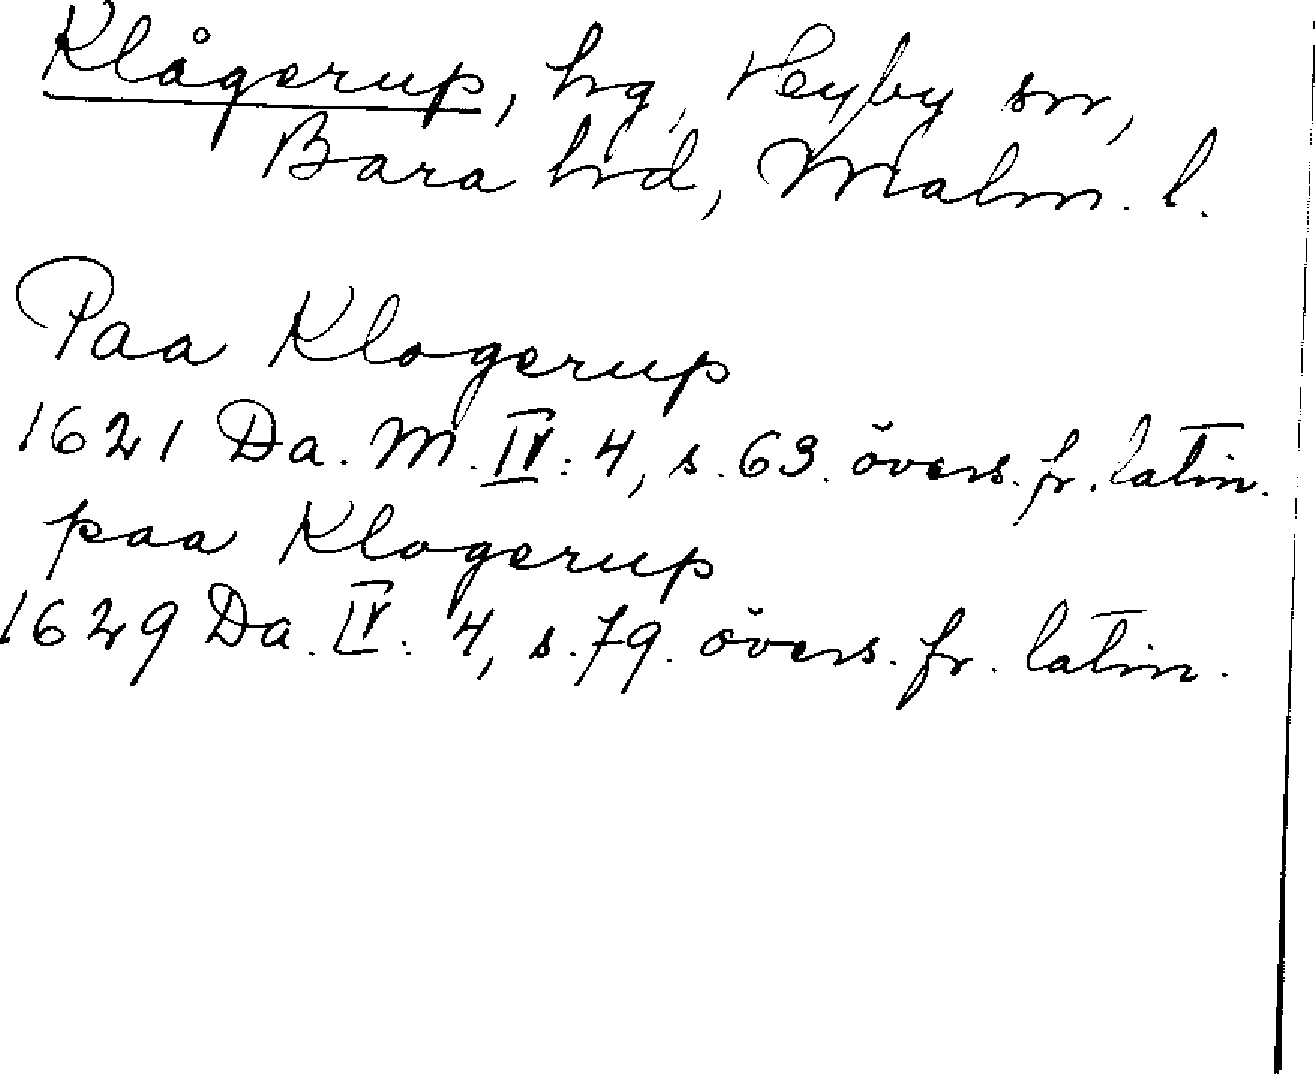 Klågerup, hg, Hyby sn,
Bara hrd, Malm. l.
Paa Klogerup
1621 Da. M. IV: 4, s. 63. övers. fr. latin.
paa Klogerup
1629 Da. IV. 4, s. 79. övers. fr. latin.